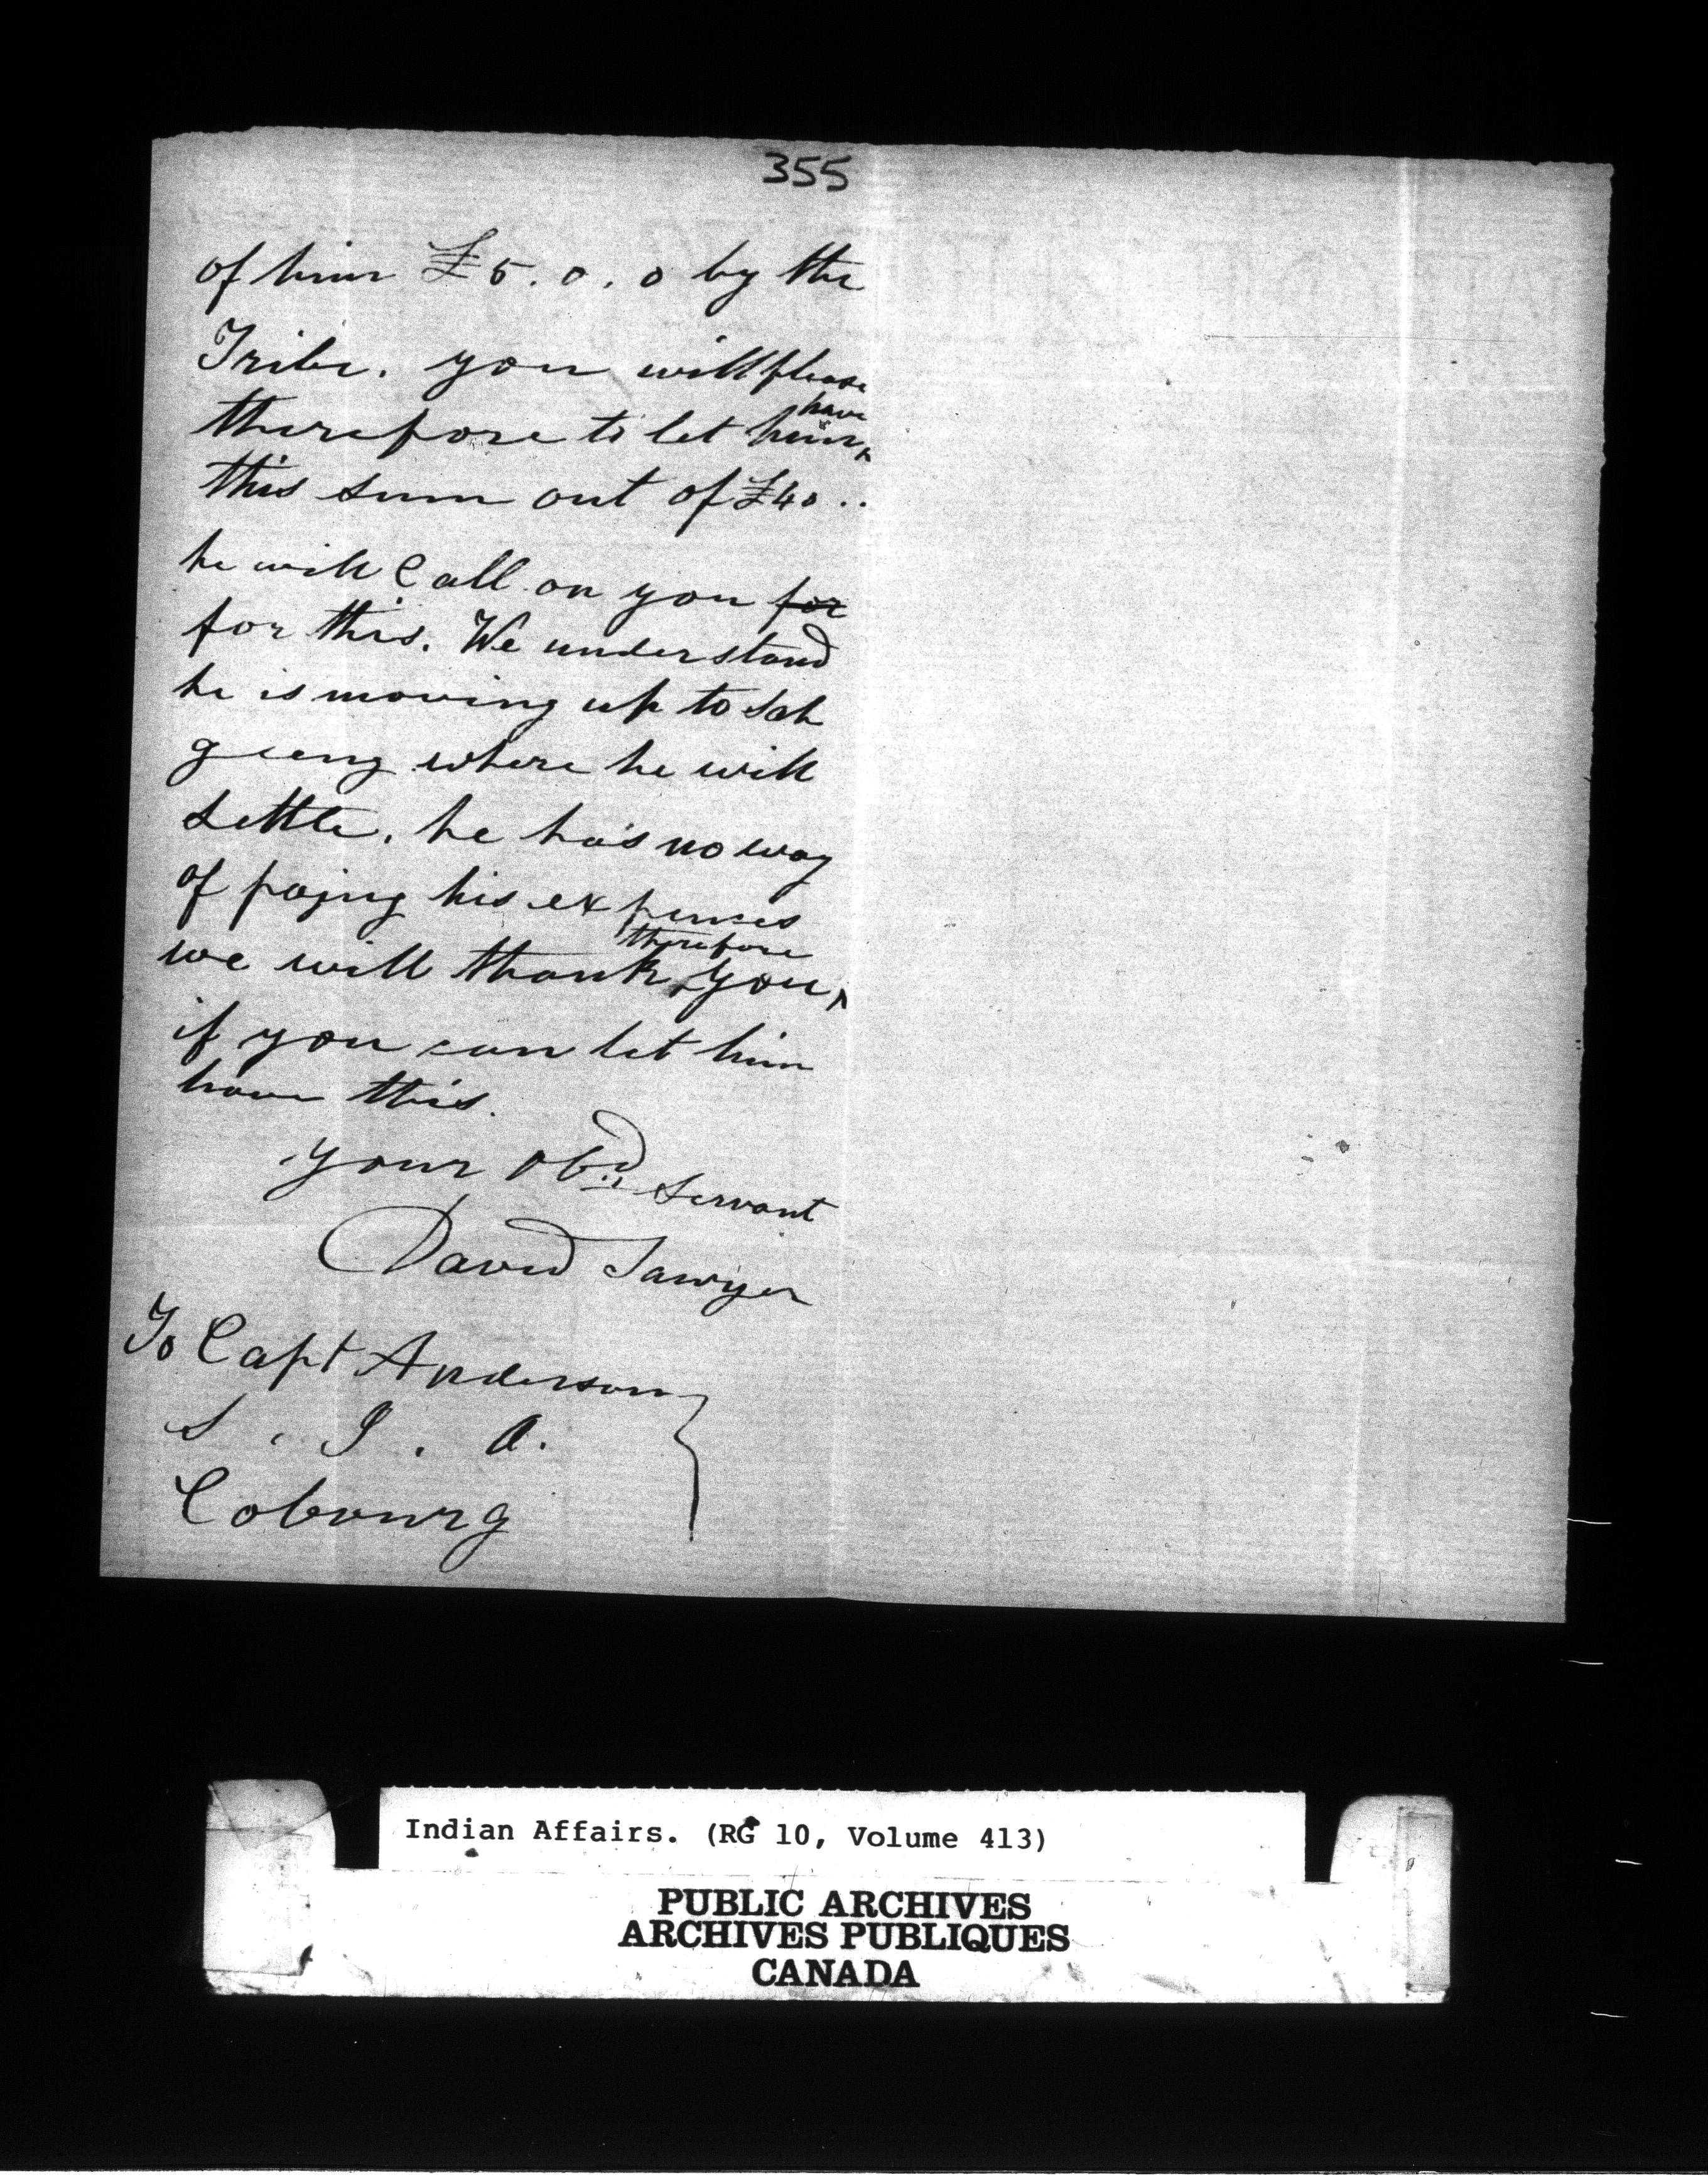 355
of him £5. 0. 0 by the
Tribe. you will please
therefore to let him have
this sum out of £40..
he will Call on you for
for this. We understand
he is moving up to Sah
geeng where he will
settle. he has no way
of pajng his expenses
we will thank therefore you
if you can let him
have this.
your Obd. servant
David Sawyer
To Capt Anderson
S. I. A.
Cobourg
Indian Affairs. (RG 10, Volume 413)
PUBLIC ARCHIVES
ARCHIVES PUBLIQUES
CANADA